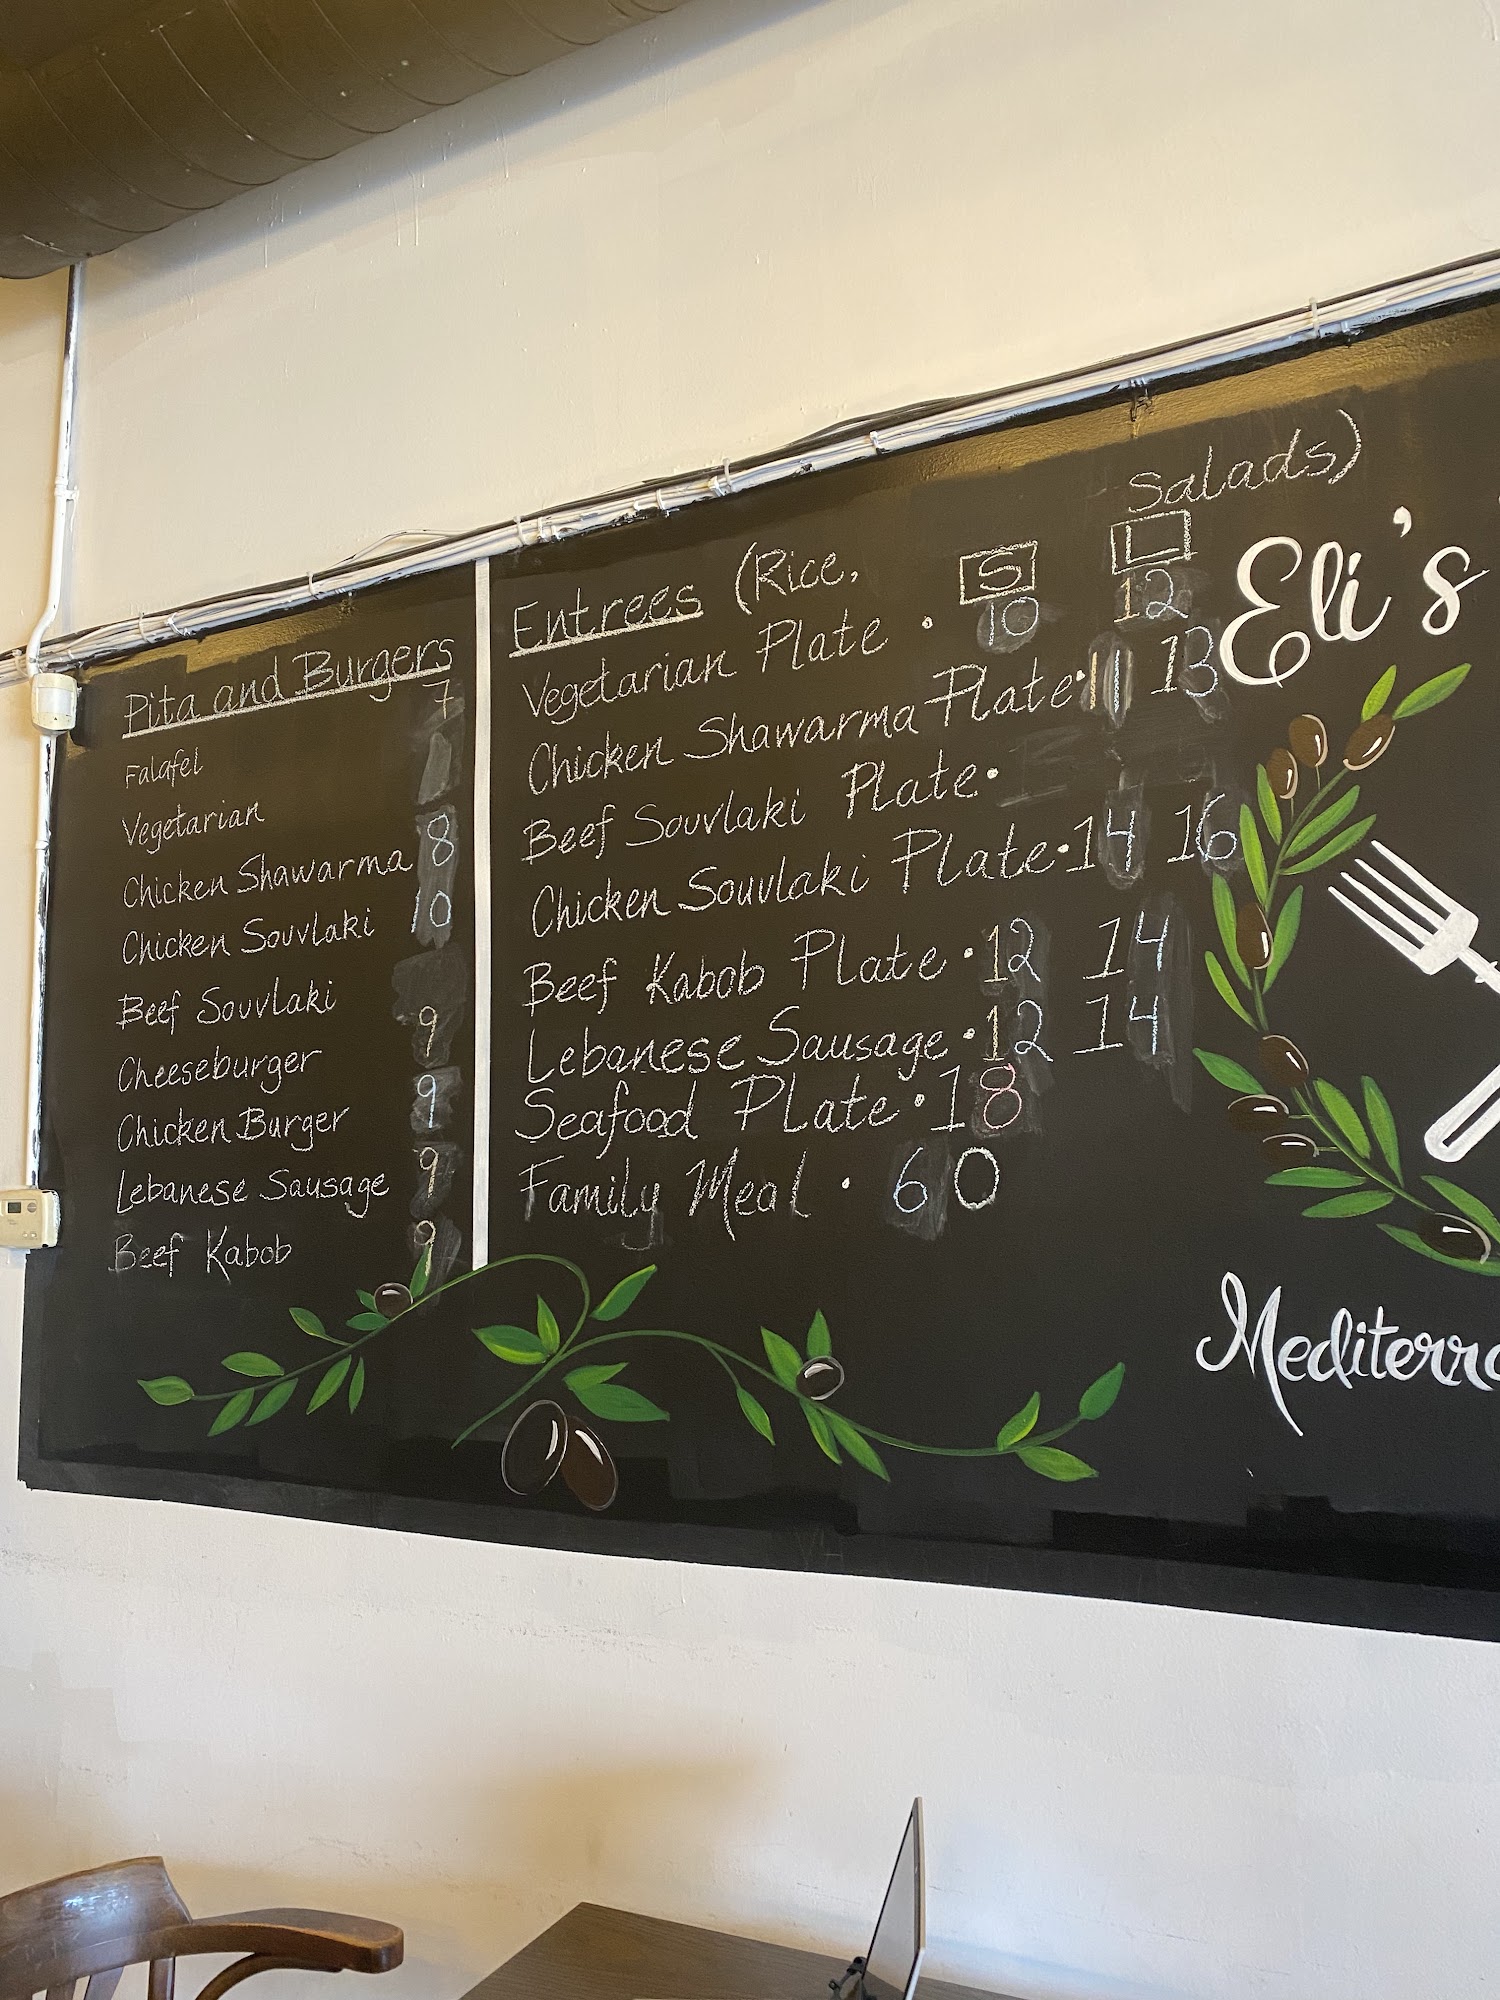 Pita and Burgers
Falafel 7
Vegetarian
Chicken Shawarma 8
Chicken Souvlaki 10
Beef Souvlaki
Cheeseburger 9
Chicken Burger 9
Lebanese Sausage 9
Beef Kabob 9
Entrees (Rice, Salads)
S L
Vegetarian Plate • 10 12
Chicken Shawarma Plate • 11 13
Beef Souvlaki Plate •
Chicken Souvlaki Plate • 14 16
Beef Kabob Plate • 12 14
Lebanese Sausage • 12 14
Seafood Plate • 18
Family Meal • 60
Eli's
Mediterra